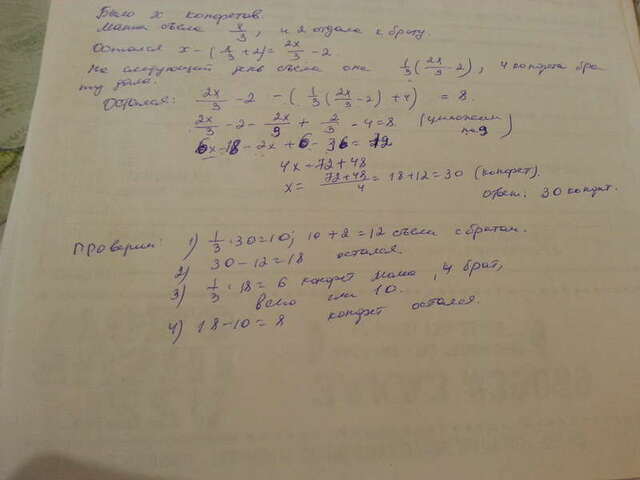 Было x конфетов.
Маша съела x/3, и 2 отдала к брату.
Остался x - (x/3 + 2) = 2x/3 - 2
На следующей день съела она 1/3(2x/3 - 2), 4 конфета бра
ту дала.
Остался: 2x/3 - 2 - (1/3(2x/3 - 2) + 4) = 8.
2x/3 - 2 - 2x/9 + 2/3 - 4 = 8 (умножим на 9)
6x - 18 - 2x + 6 - 36 = 72
4x = 72 + 48
x = 72+48/4 = 18 + 12 = 30 (конфет).
ответ: 30 конфет.
Проверим: 1) 1/3 · 30 = 10; 10 + 2 = 12 съели с братом.
2) 30 - 12 = 18 остался.
3) 1/3 · 18 = 6 конфет Маша, 4 брат,
всего 10.
4) 18 - 10 = 8 конфет остался.